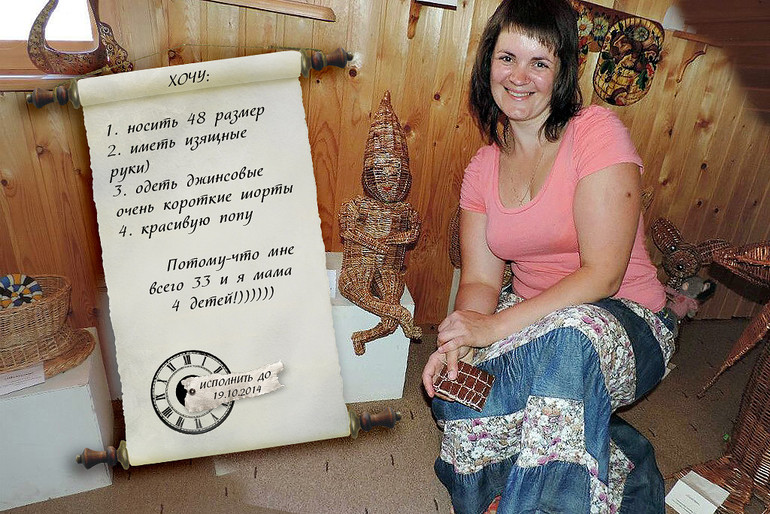 ХОЧУ:
1. носить 48 размер
2. иметь изящные
руки)
3. одеть джинсовые
очень короткие шорты
4. красивую попу
Потому-что мне
всего 33 и я мама
4 детей!))))))
ИСПОЛНИТЬ ДО
19.10.2014